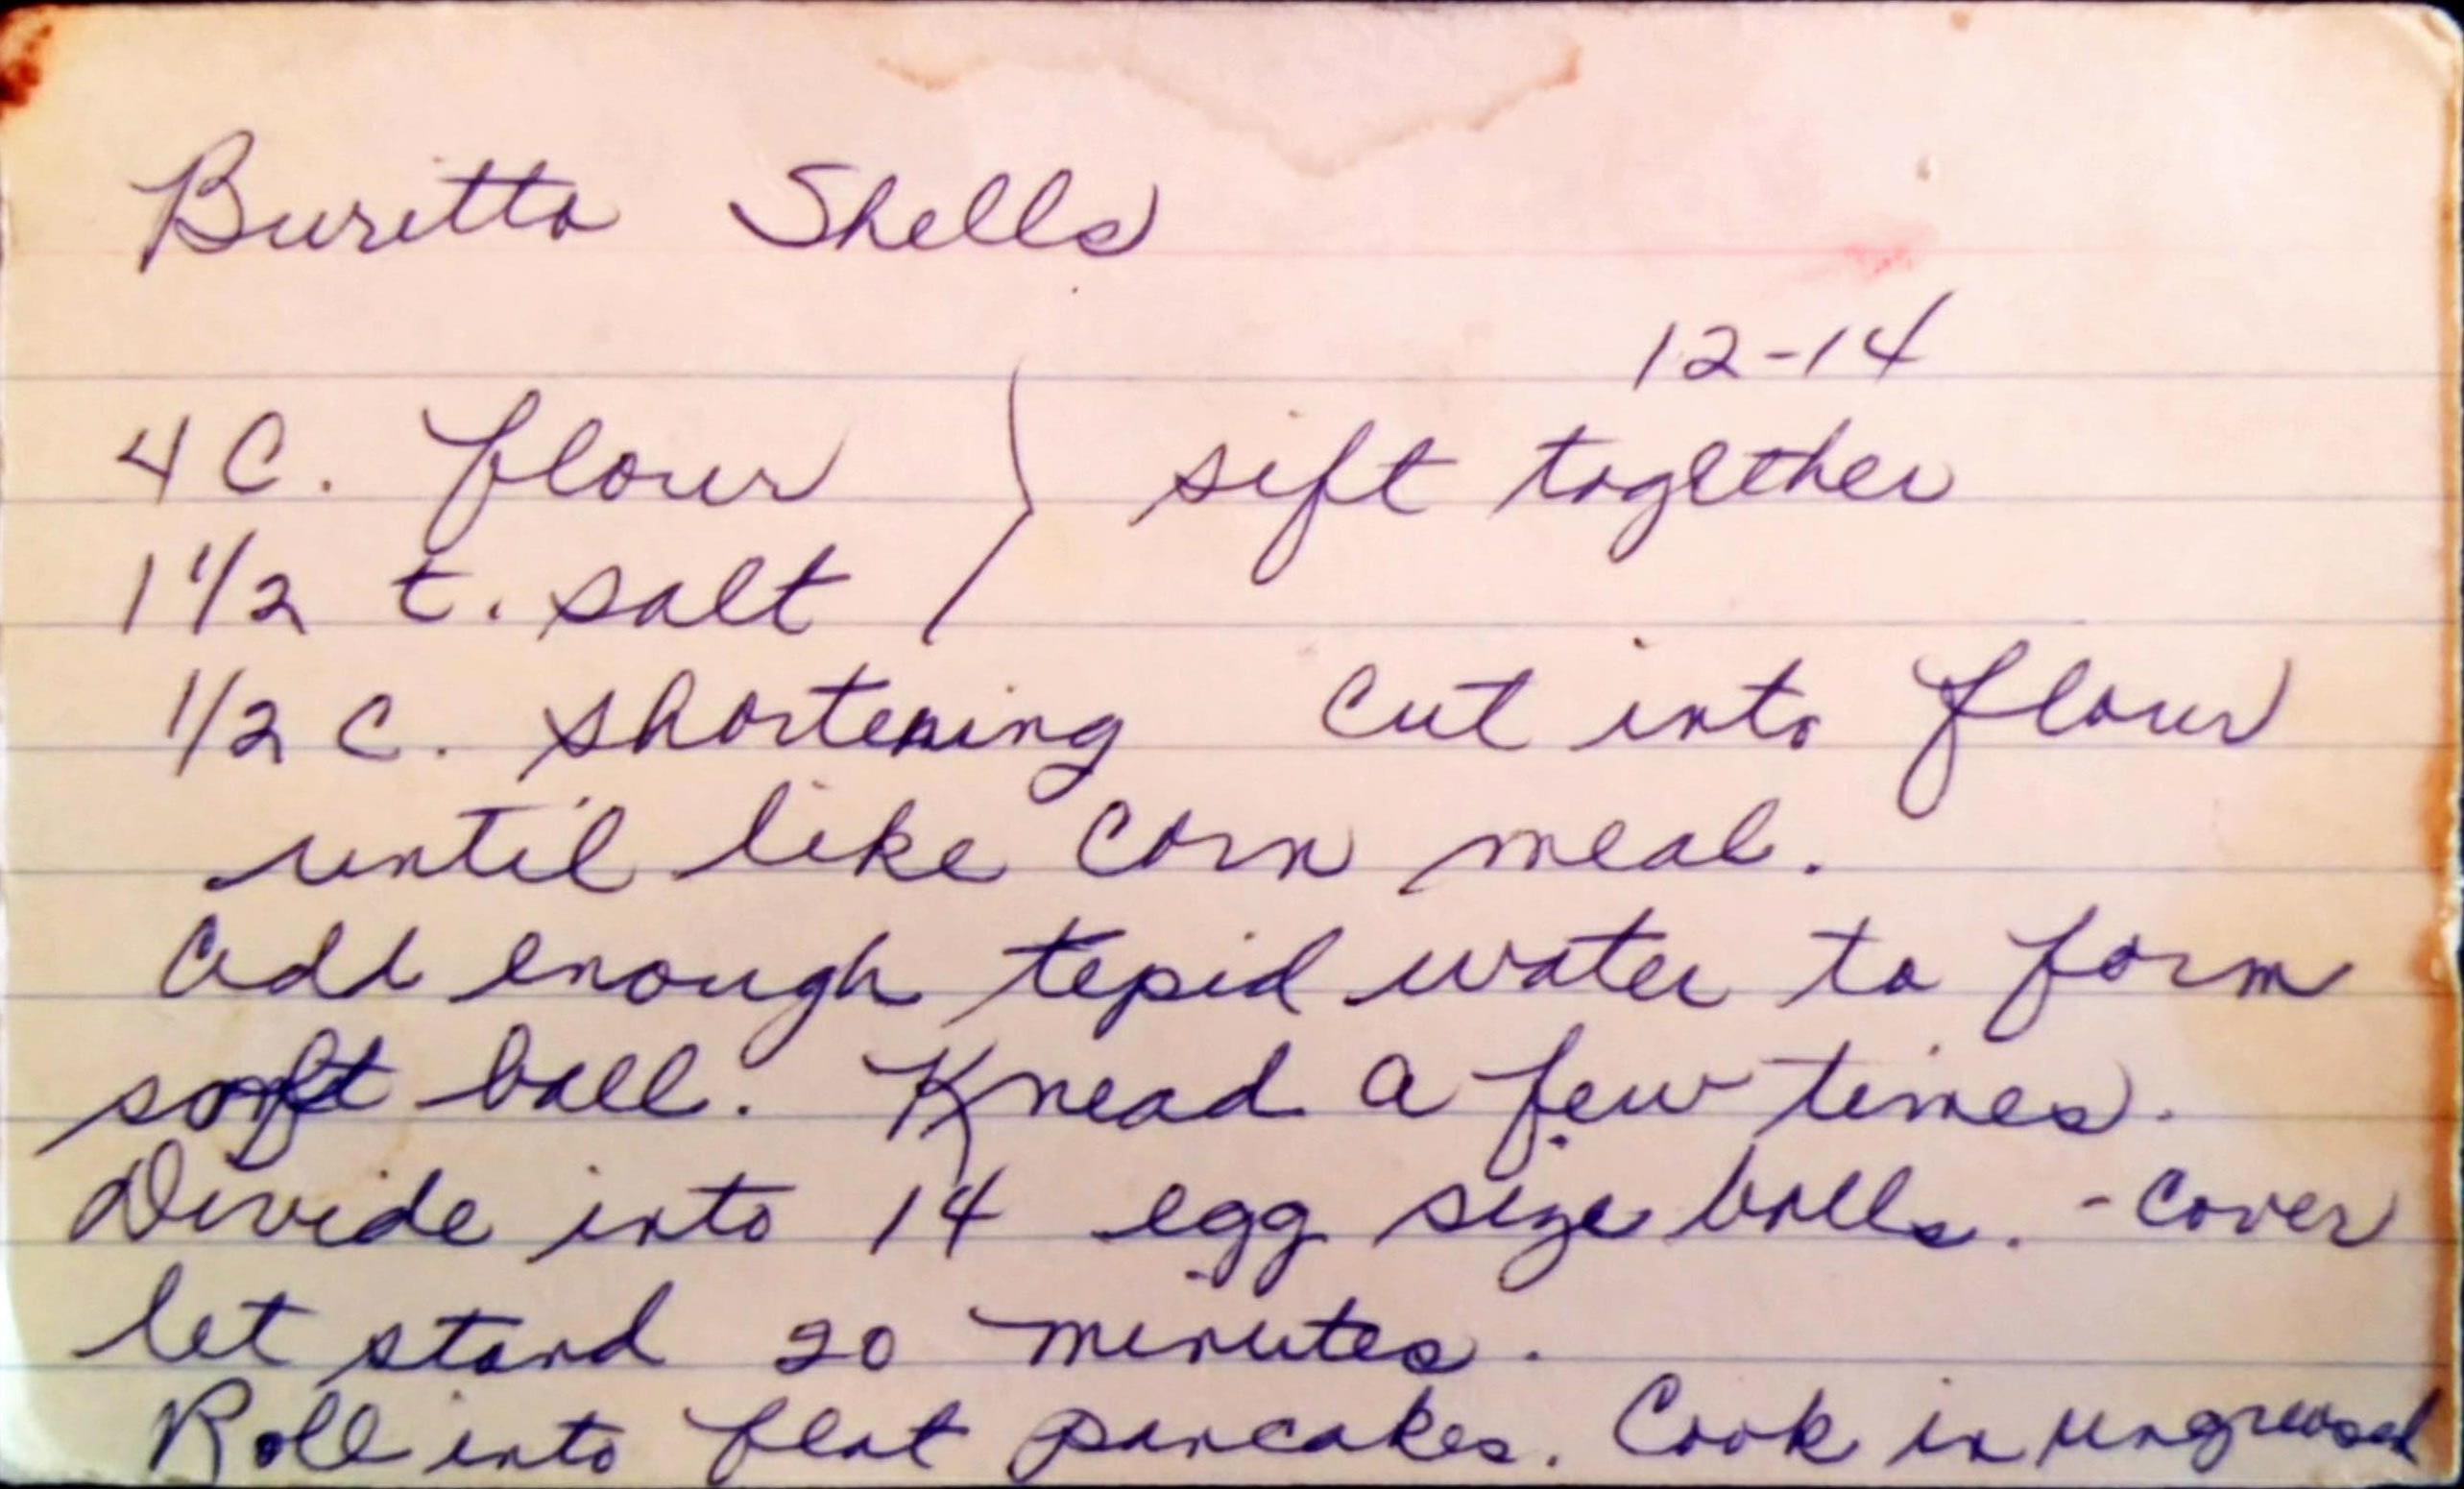 Buritto Shells
12-14
4 C. flour } sift together
1 1/2 t. salt
1/2 c. shortening cut into flour
until like corn meal.
add enough tepid water to form
soft ball. Knead a few times.
Divide into 14 egg size balls. - cover
let stand 20 minutes.
Roll into flat pancakes. Cook in ungreased